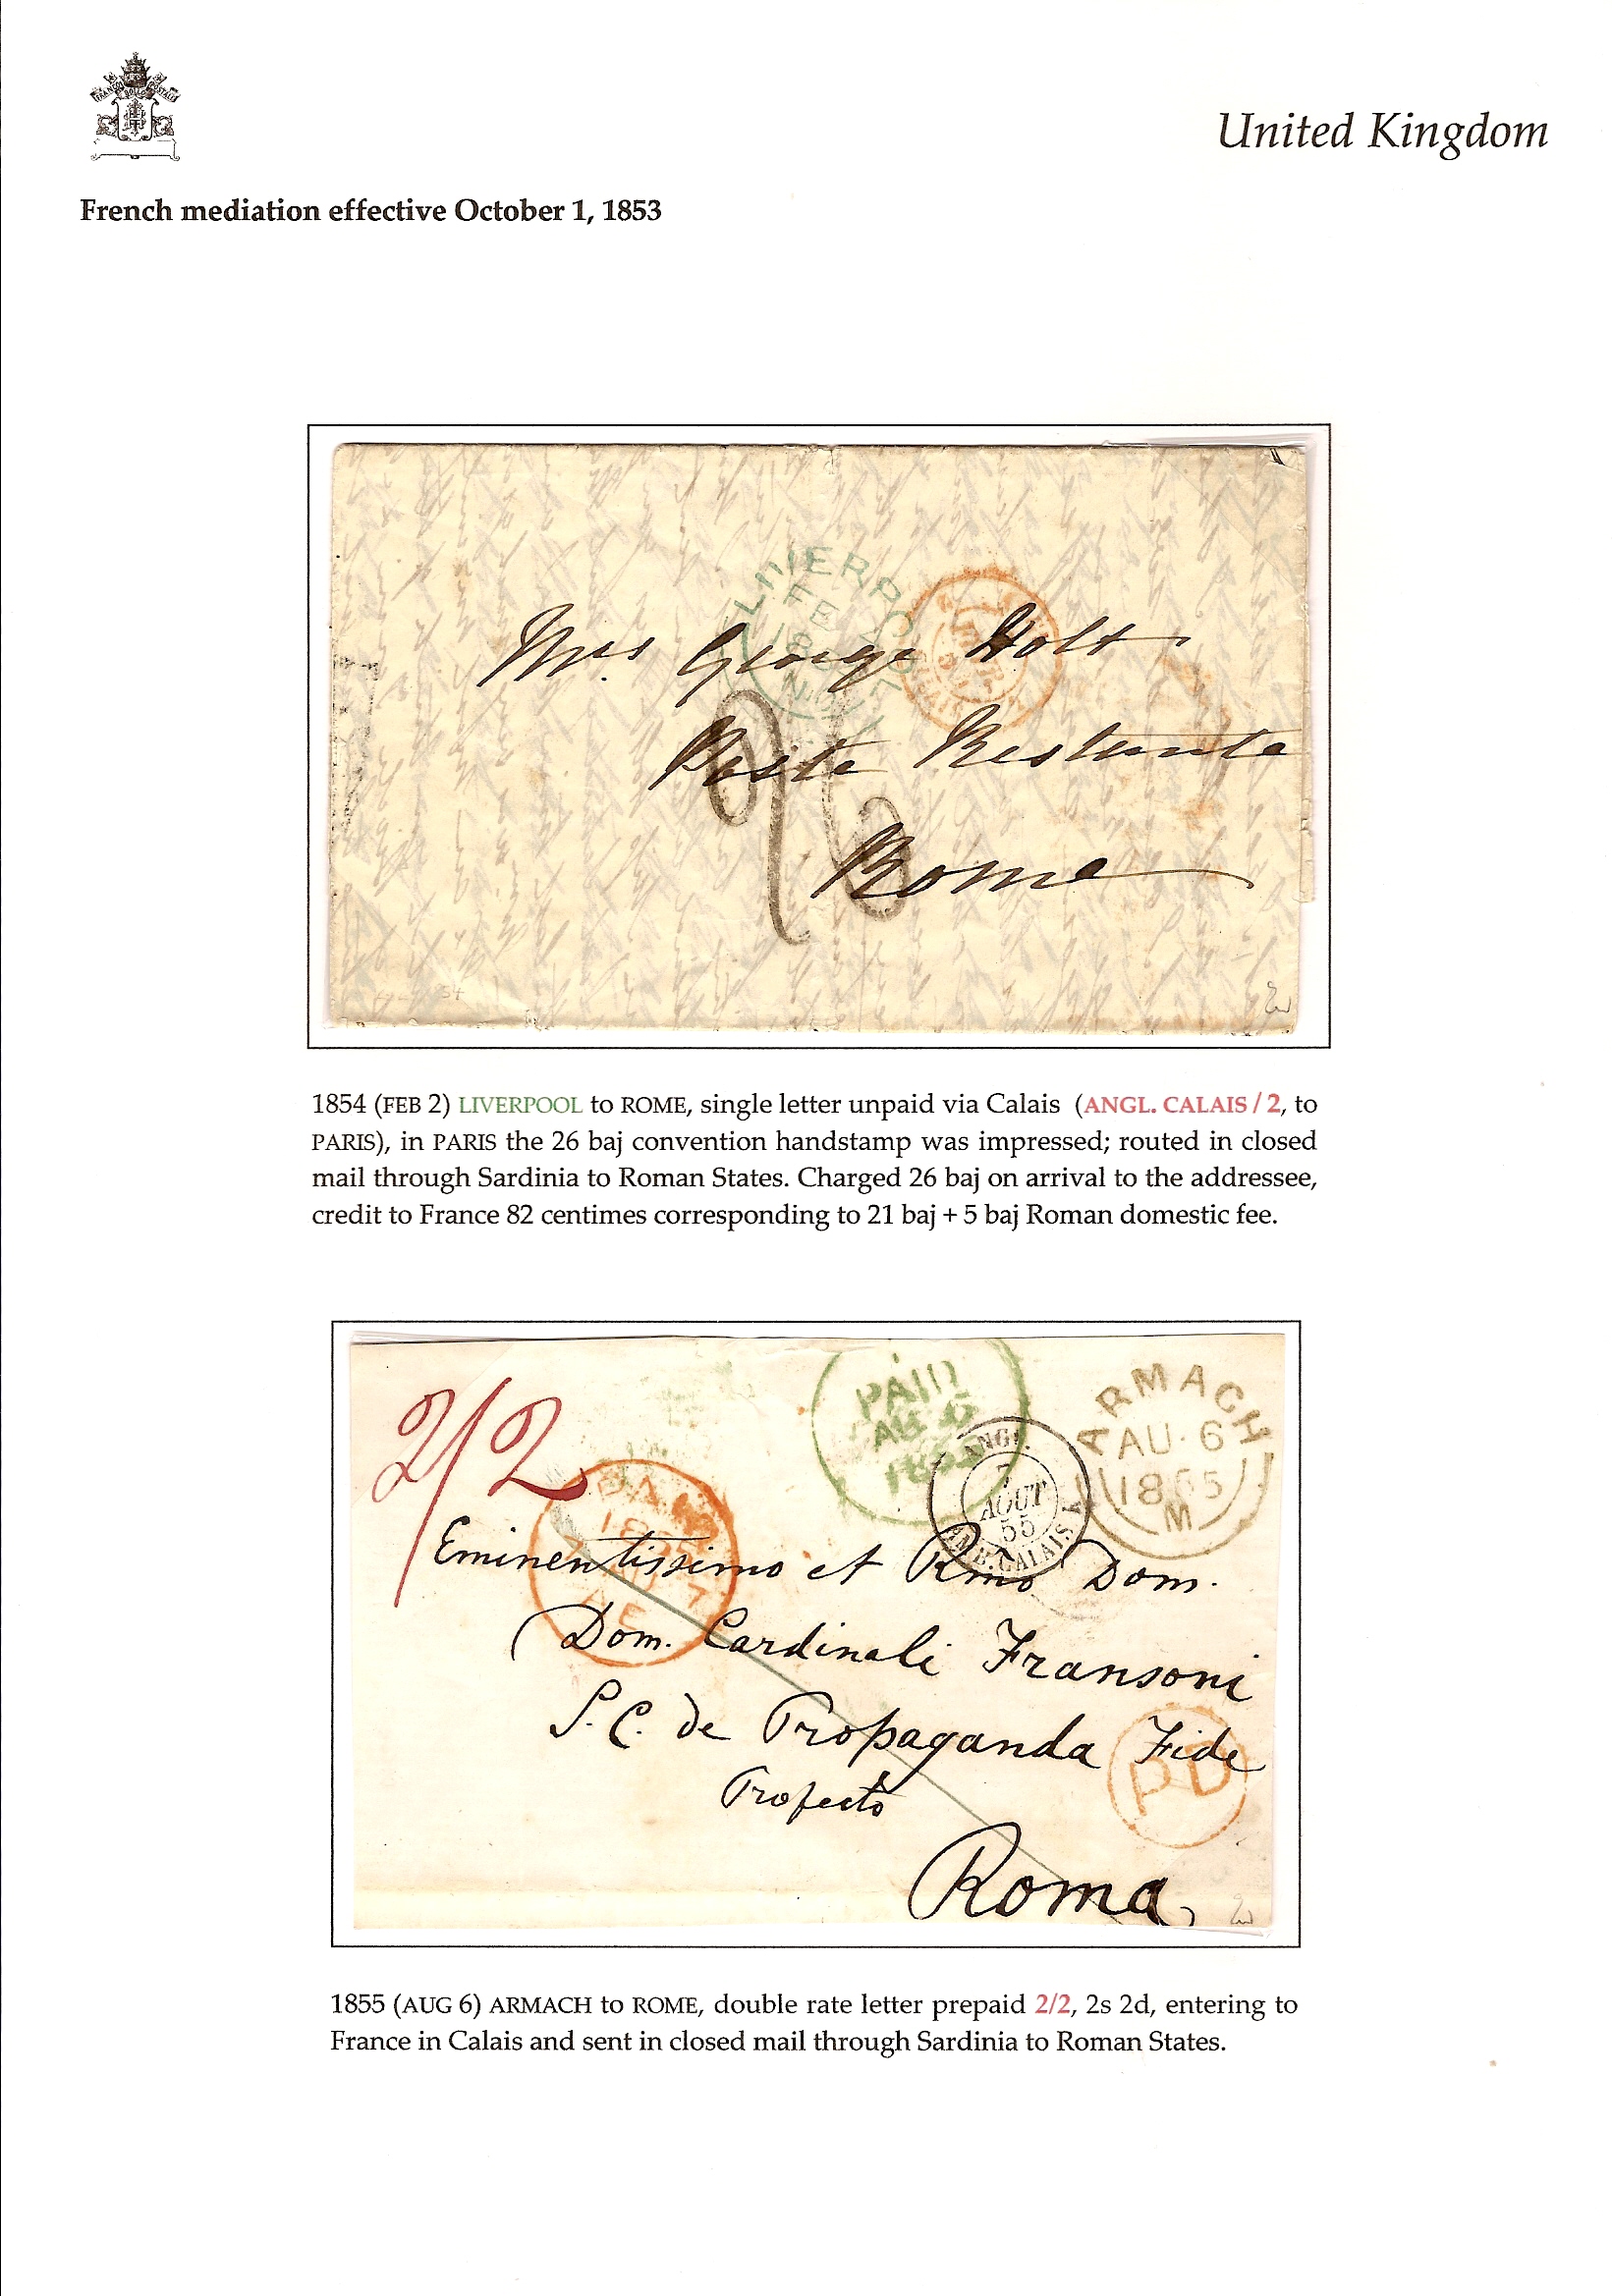 FRANCO BOLLO POSTALE
United Kingdom
French mediation effective October 1, 1853
LIVERPOOL
FE
Mrs. George Holt
Poste Restante
26
Rome
54
1854 (FEB 2) LIVERPOOL to ROME, single letter unpaid via Calais (ANGL. CALAIS / 2, to
PARIS), in PARIS the 26 baj convention handstamp was impressed; routed in closed
mail through Sardinia to Roman States. Charged 26 baj on arrival to the addressee,
credit to France 82 centimes corresponding to 21 baj + 5 baj Roman domestic fee.
2/2
PAID
AU
1855
ANGL.
7
AOUT
55
AMB. CALAIS
ARMAGH
AU·6
1855
M
PAID
7
Eminentissimo et Rmo Dom.
Dom. Cardinali Fransoni
S. C. de Propaganda Fide
PD
Profecto
Roma,
1855 (AUG 6) ARMACH to ROME, double rate letter prepaid 2/2, 2s 2d, entering to
France in Calais and sent in closed mail through Sardinia to Roman States.